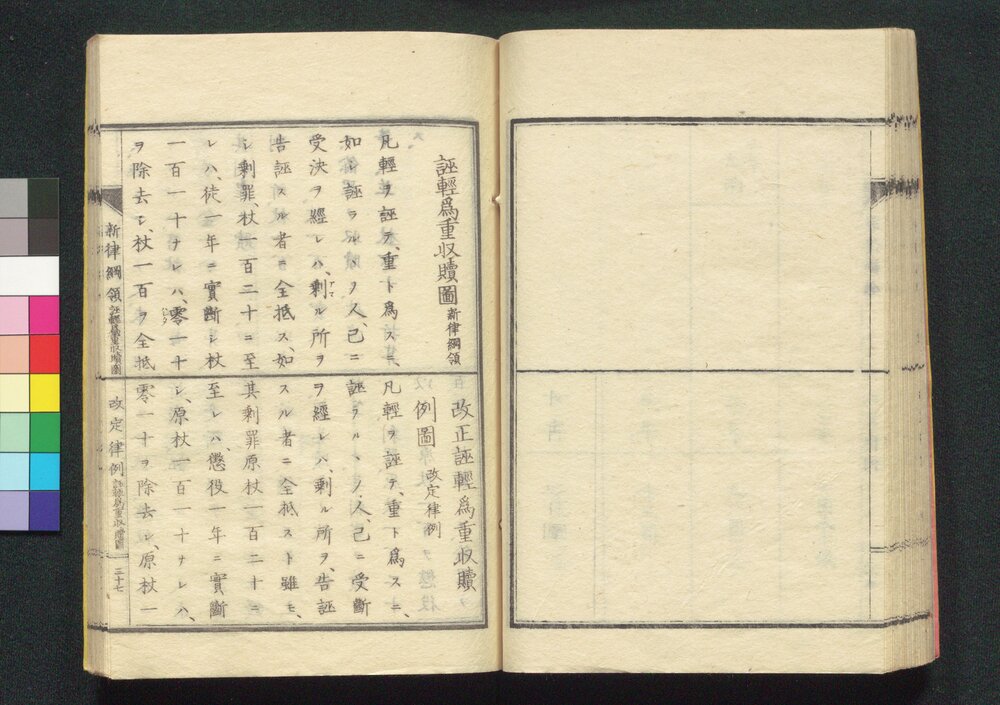 誣輕爲重收贖圖 新律綱領
凡輕ヲ誣テ、重ト爲スニ、
如シ誣ラル丶ノ人、已ニ
受決ヲ經レハ、剰ル所ヲ
告誣スル者ニ全抵ス、如
シ剰罪、杖一百二十ニ至
レハ、徒一年ニ實斷シ杖
一百一十ナレハ、零一十
ヲ除去シ、杖一百ヲ全抵
改正誣輕爲重收贖
例圖 改定律例
凡輕ヲ誣テ、重ト爲スニ、
誣ラル丶ノ人、已ニ受斷
ヲ經レハ、剰ル所ヲ、告誣
スル者ニ全抵スト雖モ、
其剰罪原杖一百二十ニ
至レハ、懲役一年ニ實斷
シ、原杖一百一十ナレハ、
零一十ヲ除去シ、原杖一
新律綱領 誣輕爲重收贖圖
改定律例 誣輕爲重收贖圖
三十七